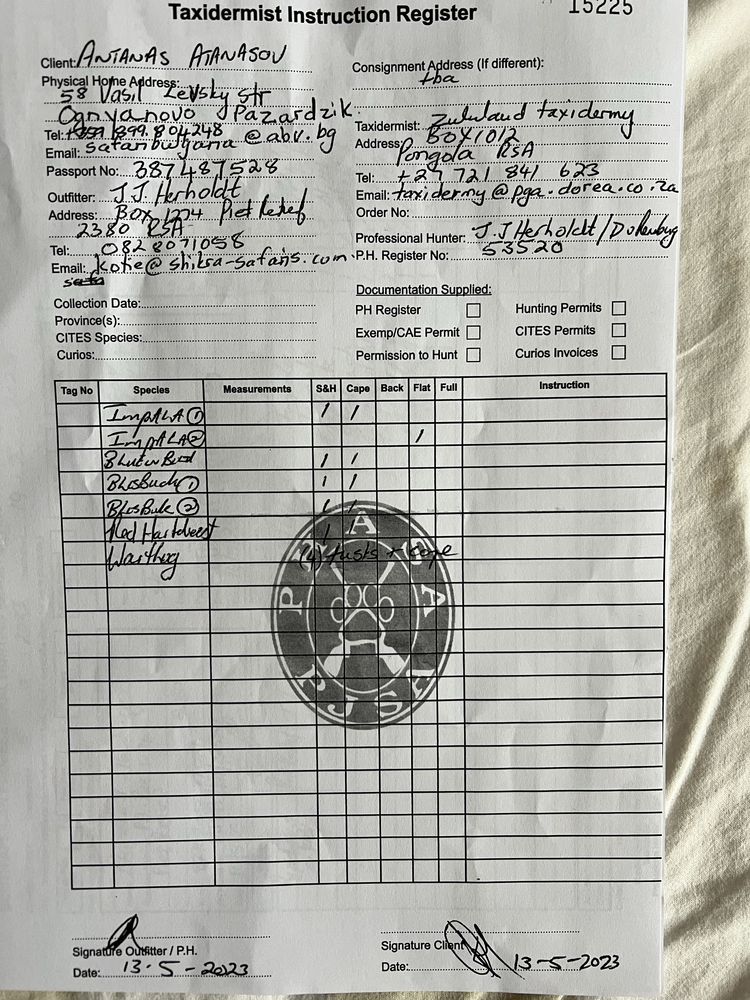 Taxidermist Instruction Register
15225
Client: ANTANAS ATANASOV
Physical Home Address:
58 Vasil Levsky str
Ognyanovo Pazardzik
Tel: 899.804248
Email: safaribulgaria @abv.bg
Passport No: 387487528
Outfitter: J.J. Herholdt
Address: Box 1274 Piet Retief
2380 RSA
Tel: 082 8071058
Email: kotie@shikra-safaris.com
Collection Date:
Province(s):
CITES Species:
Curios:
Consignment Address (If different):
tba
Taxidermist: Zululand taxidermy
Address: BOX 1012
Pongola RSA
Tel: +27 721 841 623
Email: taxidermy@pga.dorea.co.za
Order No:
Professional Hunter: J.J Herholdt /
P.H. Register No: 53520
Documentation Supplied:
PH Register
Hunting Permits
Exemp/CAE Permit
CITES Permits
Permission to Hunt
Curios Invoices
Tag No Species Measurements S&H Cape Back Flat Full Instruction
ImpALA ① / /
ImpALA ② /
BlueW Beest / /
BlesBuck ① / /
BlesBuk ② / /
Red Hartebeest / /
Warthog (4) tusks + cape
PHASA
PJSA
Signature Outfitter / P.H.
Date: 13-5-2023
Signature Client
Date: 13-5-2023